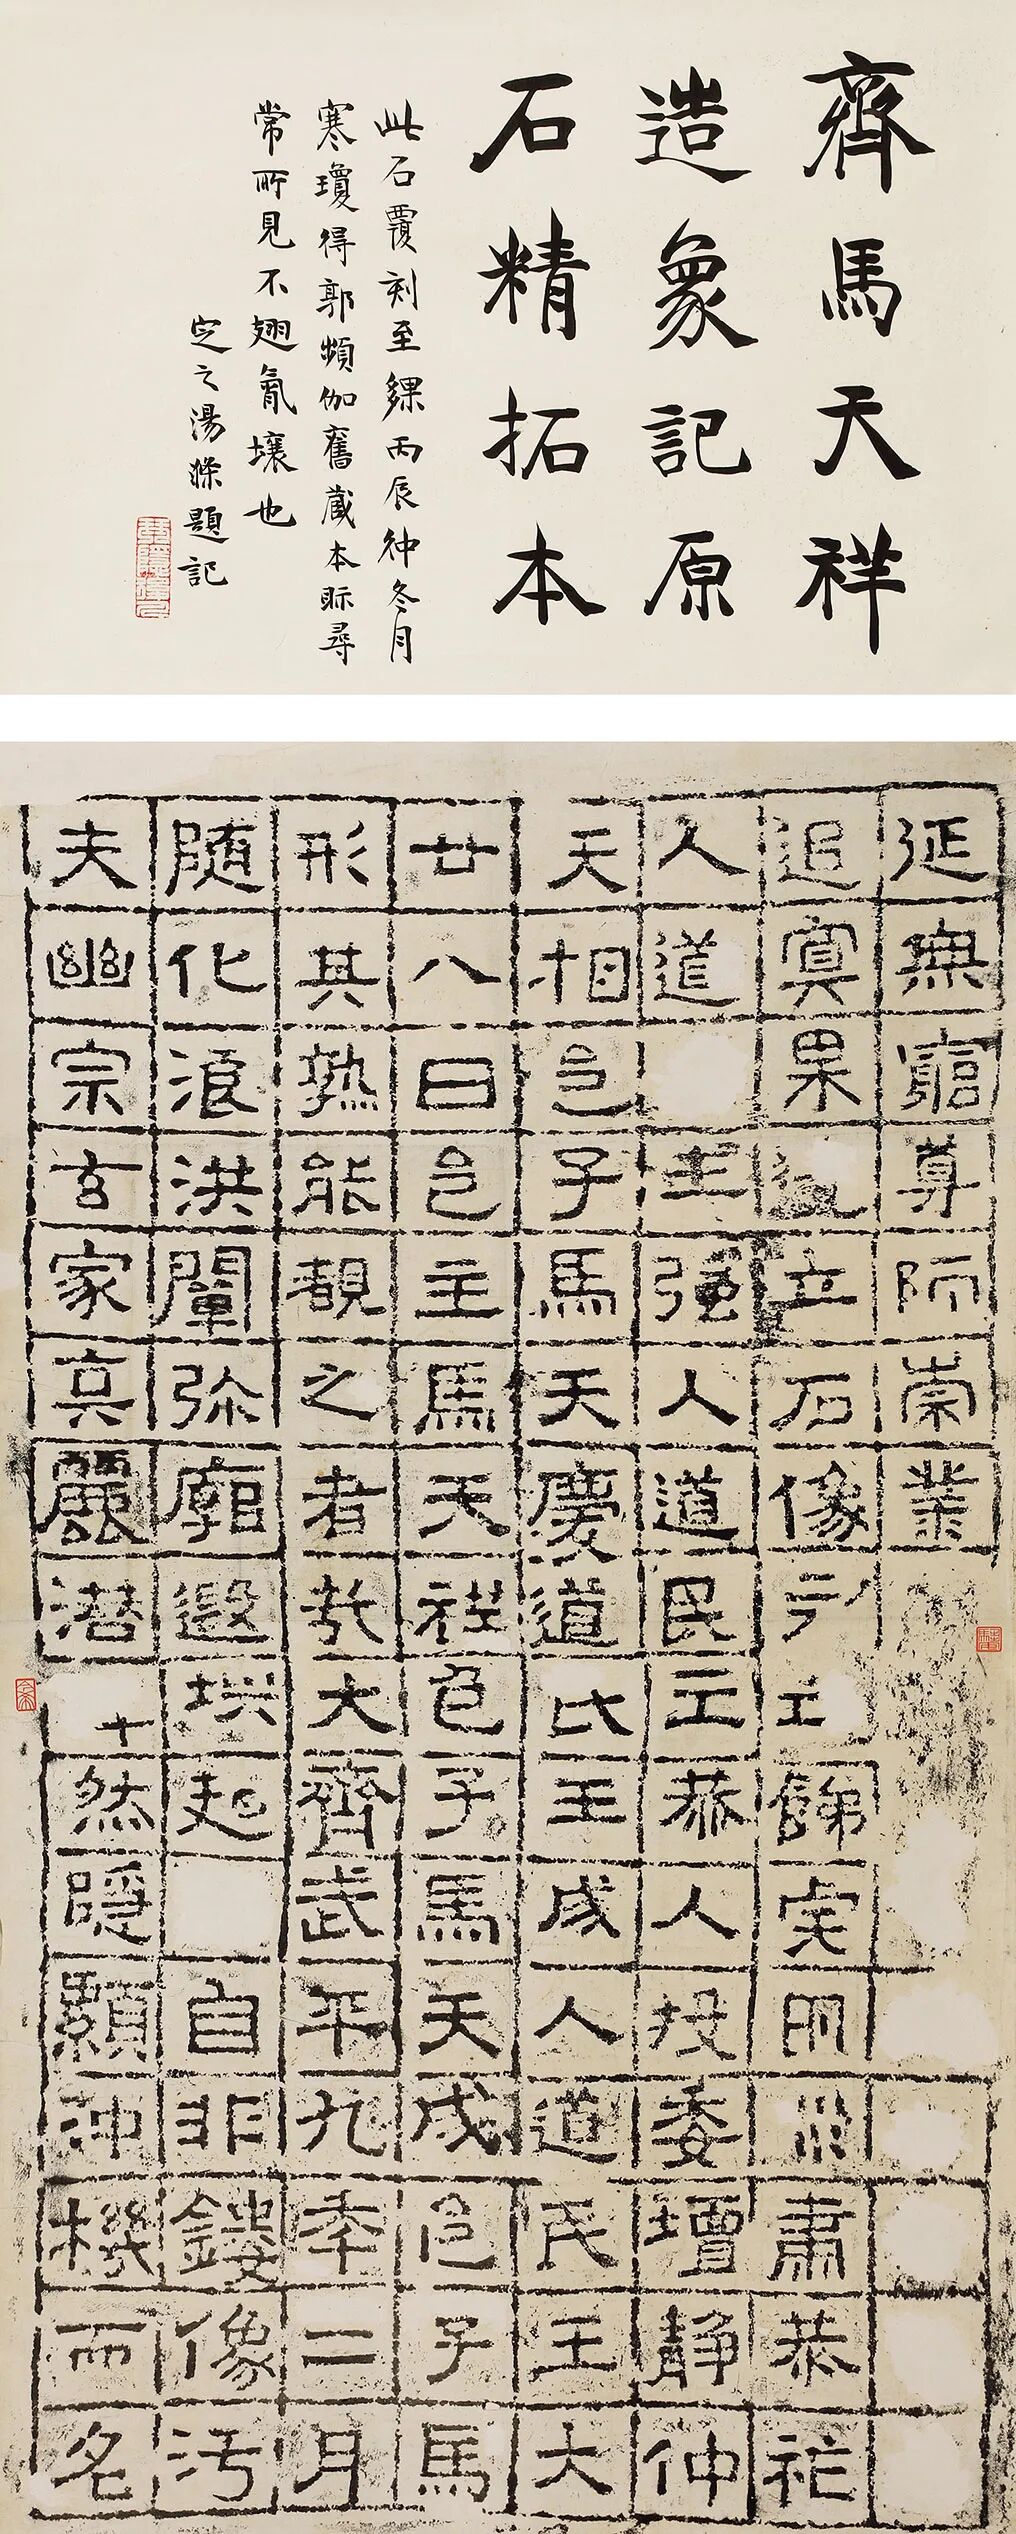 齊馬天祥
造象記原
石精拓本
此石覆刻至夥丙辰仲冬月
寒瓊得郭頻伽舊藏本眎尋
常所見不翅霄壤也
定之湯滌題記
夫幽宗玄家真麗潛然隱顯沖機而名
随化浪洪闡弥廓遐垬起自非鏤像汚
形其孰能覩之者哉大齊武平九年二月
廿八日邑主馬天祥邑子馬天成邑子馬
天相邑子馬天慶道民王成人道民王大
人道王強人道民王恭人投委壇静仲
追冥果立石像工餝肅恭祀
延無窮尊師崇業